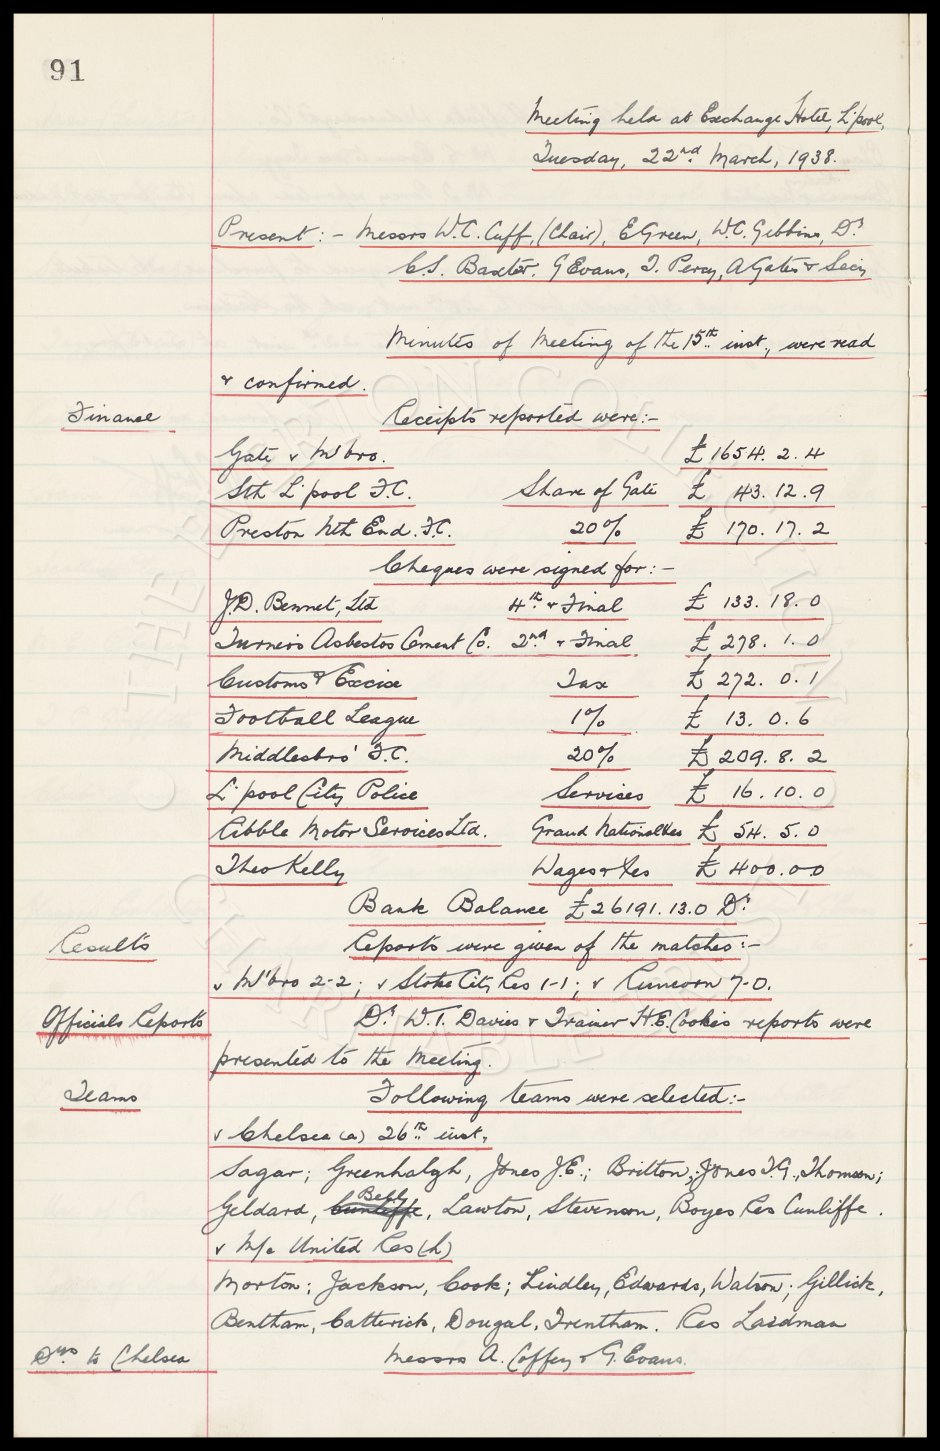 91
Meeting held at Exchange Hotel, L'pool,
Tuesday, 22nd March, 1938.
Present:- Messrs W.C. Cuff, (Chair), E Green, W.C. Gibbins, Dr
C.S. Baxter, G Evans, T. Percy, A Gates & Secy
Minutes of Meeting of the 15th inst., were read
& confirmed.
Finance Receipts reported were:-
Gate v M'bro. £1654. 2. 4
Sth L'pool F.C. Share of Gate £ 43. 12. 9
Preston Nth End. F.C. 20% £ 170. 17. 2
Cheques were signed for:-
J.D. Bennet, Ltd 4th & Final £ 133. 18. 0
Turners Asbestos Cement Co. 2nd & Final £ 278. 1. 0
Customs & Excise Tax £ 272. 0. 1
Football League 1% £ 13. 0. 6
Middlesbro' F.C. 20% £ 209. 8. 2
L'pool City Police Services £ 16. 10. 0
Ribble Motor Services Ltd. Grand National £ 54. 5. 0
Theo Kelly Wages & Xes £ 400.00
Bank Balance £26191.13.0 Dr
Results Reports were given of the matches:-
v M'bro 2-2; v Stoke City Res 1-1; v Runcorn 7-0.
Officials Reports Dr W.T. Davies & Trainer H.E. Cooke's reports were
presented to the Meeting.
Teams Following teams were selected:-
v Chelsea (a) 26th inst.
Sagar; Greenhalgh, Jones J.E.; Britton; Jones T.G., Thomson;
Geldard, Cunliffe Bell, Lawton, Stevenson, Boyes Res Cunliffe.
v M/c United Res (h)
Morton; Jackson, Cook; Lindley, Edwards, Watson; Gillick,
Bentham, Catterick, Dougal, Trentham. Res Laidman
Drs to Chelsea Messrs A. Coffey & G. Evans.
THE EVERTON COLLECTION
CHARITABLE TRUST